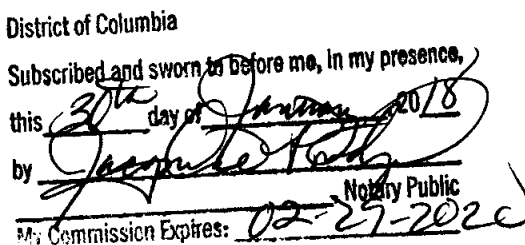 District of Columbia
Subscribed and sworn to before me, in my presence,
this 30th day of January, 2018
by Jacqueline
Notary Public
My Commission Expires: 02-29-2020